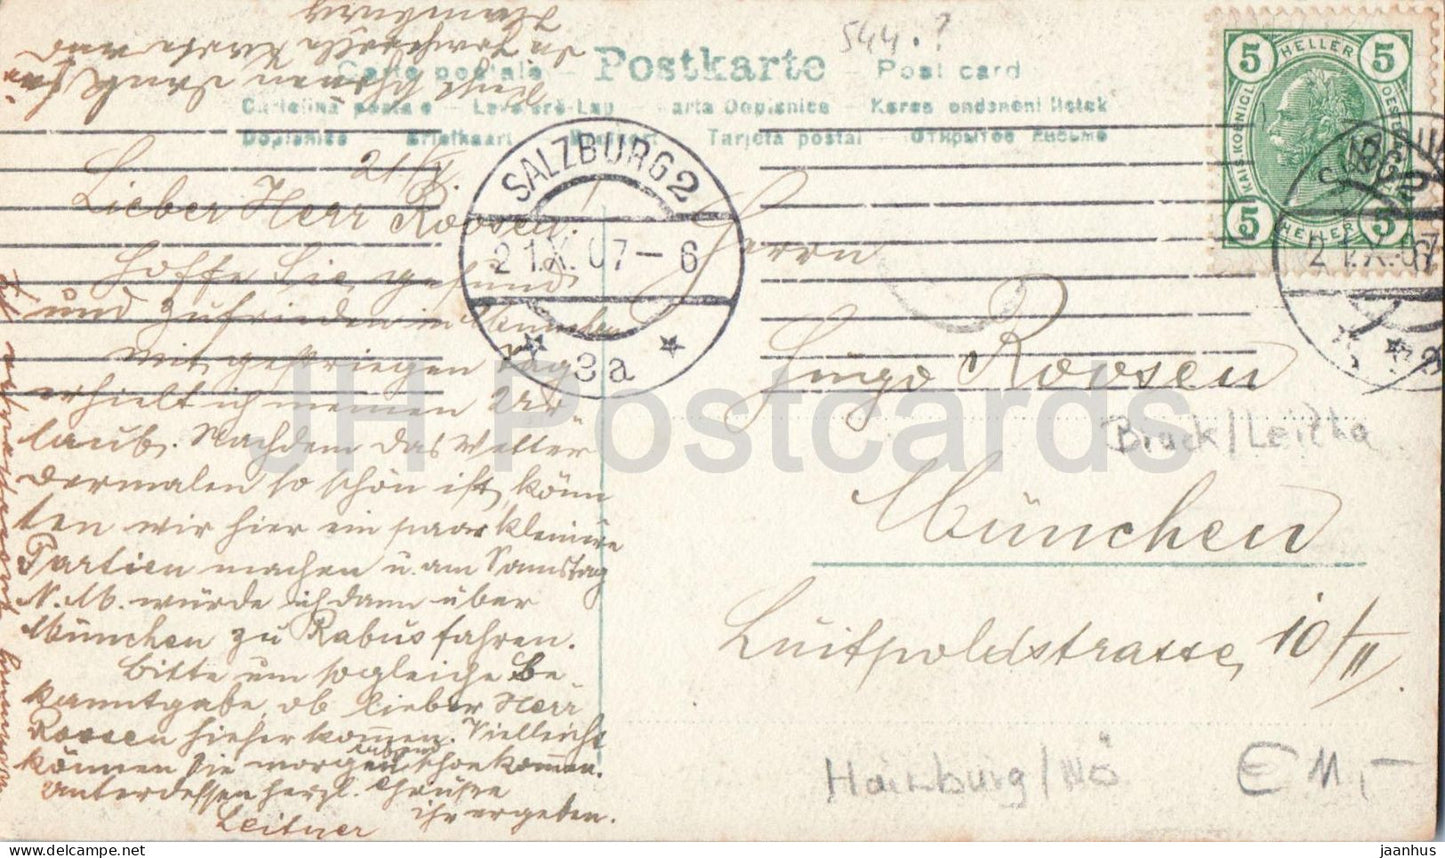 Postkarte
Carte postale — Post card
Cartolina postale — Levelező-Lap — Karta Dopisnice — Korespondenční lístek
Dopisnice — Briefkaart — Tarjeta postal — Открытое письмо
544.?
5 HELLER 5
5 HELLER 5
SALZBURG 2
21.X.07–6
* 3a *
21/X
Lieber Herr Roosen!
Hoffe Sie gesund
und zufrieden in München
Mit gestriegen Tag
erhielt ich meinen Ur-
laub. Nachdem das Wetter
dermalen so schön ist, könn
ten wir hier ein paar kleinere
Partien machen u. am Samstag
N.M. würde ich dann über
München zu Rabus fahren.
Bitte um sogleiche Be-
kanntgabe, ob lieber Herr
Roosen hieher kommen. Vielleicht
können Sie morgen abend schon kommen.
Unterdessen herzl. Grüße
ihr ergeben.
Leitner
Herrn
Hugo Roosen
Bruck/Leitha
München
Luitpoldstrasse 10/II
Hainburg/NÖ
€ 11,-
JH Postcards
jaanhus